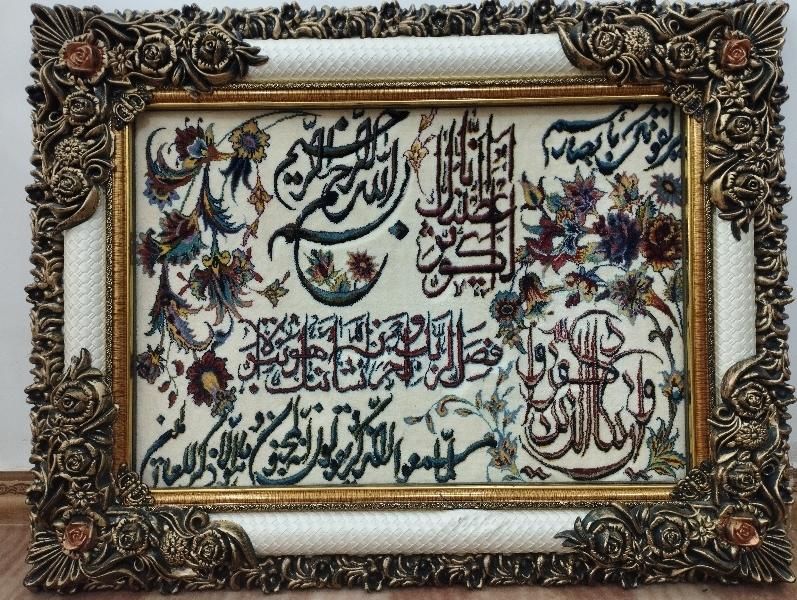 بسم الله الرحمن الرحيم
انا اعطيناك الكوثر
فصل لربك وانحر ان شانئك هو الابتر
وان يكاد الذين كفروا
ليزلقونك بابصارهم
لما سمعوا الذكر ويقولون انه لمجنون وما هو الا ذكر للعالمين